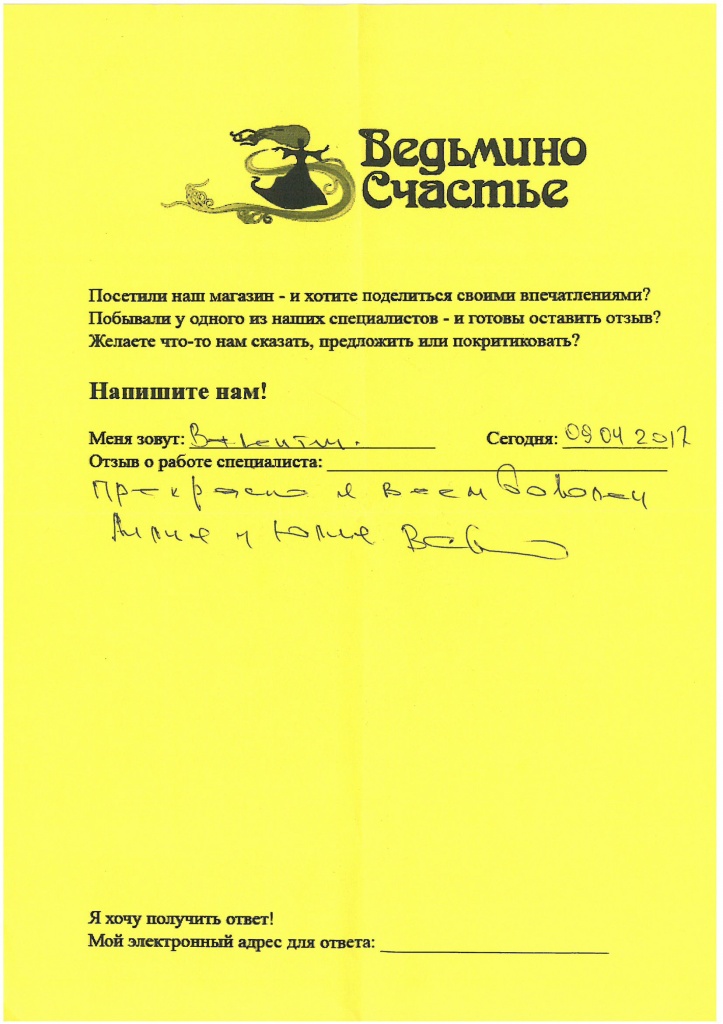 Ведьмино
Счастье
Посетили наш магазин - и хотите поделиться своими впечатлениями?
Побывали у одного из наших специалистов - и готовы оставить отзыв?
Желаете что-то нам сказать, предложить или покритиковать?
Напишите нам!
Меня зовут: Валентин. Сегодня: 09 04 2017
Отзыв о работе специалиста:
Прекрасно я всем доволен
Лилия и Юлия
Я хочу получить ответ!
Мой электронный адрес для ответа: